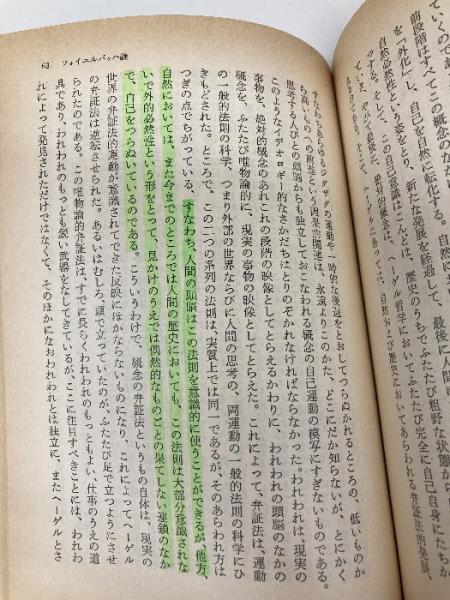 63 フォイエルバッハ論
ていくのであ
前段階はすべてこの概念のな
「外化」し、自己を自然に転化する。
自然必然性という姿をとり、新たな発展を経過して、最後に人間
する。そして、この自己意識はこんどは、歴史のうちでふたたび粗野な状態から
ヘーゲル哲学においてふたたび完全に自己自身にたちか
すなわちあらゆるジグザグの運動や一時的な後退をとおしてつらぬかれるところの、低いものか
ら高いものへの前進という因果的関連は、永遠よりこのかた、どこにだか知らないが、とにかく
思考する人びとの頭脳からも独立しておこなわれる概念の自己運動の模写にすぎないものである。
このようなイデオロギー的なさかだちはとりのぞかれなければならなかった。われわれは、現実の
事物を、絶対的概念のあれこれの段階の映像としてとらえるかわりに、われわれの頭脳のなかの
概念を、ふたたび唯物論的に、現実の事物の映像としてとらえた。これによって、弁証法は、運動
の一般的法則の科学、つまり外部の世界ならびに人間の思考の、両運動の一般的法則の科学にひ
きもどされた。ところで、この二つの系列の法則は、実質上では同一であるが、そのあらわれ方は
つぎの点でちがっている、すなわち、人間の頭脳はこの法則を意識的に使うことができるが、他方、
自然においては、また今までのところでは人間の歴史においても、この法則は大部分意識されな
いで外的必然性という形をとって、見かけのうえでは偶然的なものごとの果てしない連鎖のなか
で、自己をつらぬいているのである。こういうわけで、概念の弁証法というもの自体は、現実の
世界の弁証法的運動が意識されてできた反映にほかならないものになり、これによってヘーゲル
の弁証法は逆転させられた。あるいはむしろ、頭で立っていたのが、ふたたび足で立つようにさせ
られたのである。この唯物論的弁証法は、すでに長らくわれわれのもっともよい仕事のうえの道
具であり、われわれのもっとも鋭い武器をなしてきているが、ここに注目すべきことには、われわ
れによって発見されただけではなくて、そのほかになおわれわれとは独立に、またヘーゲルとさ